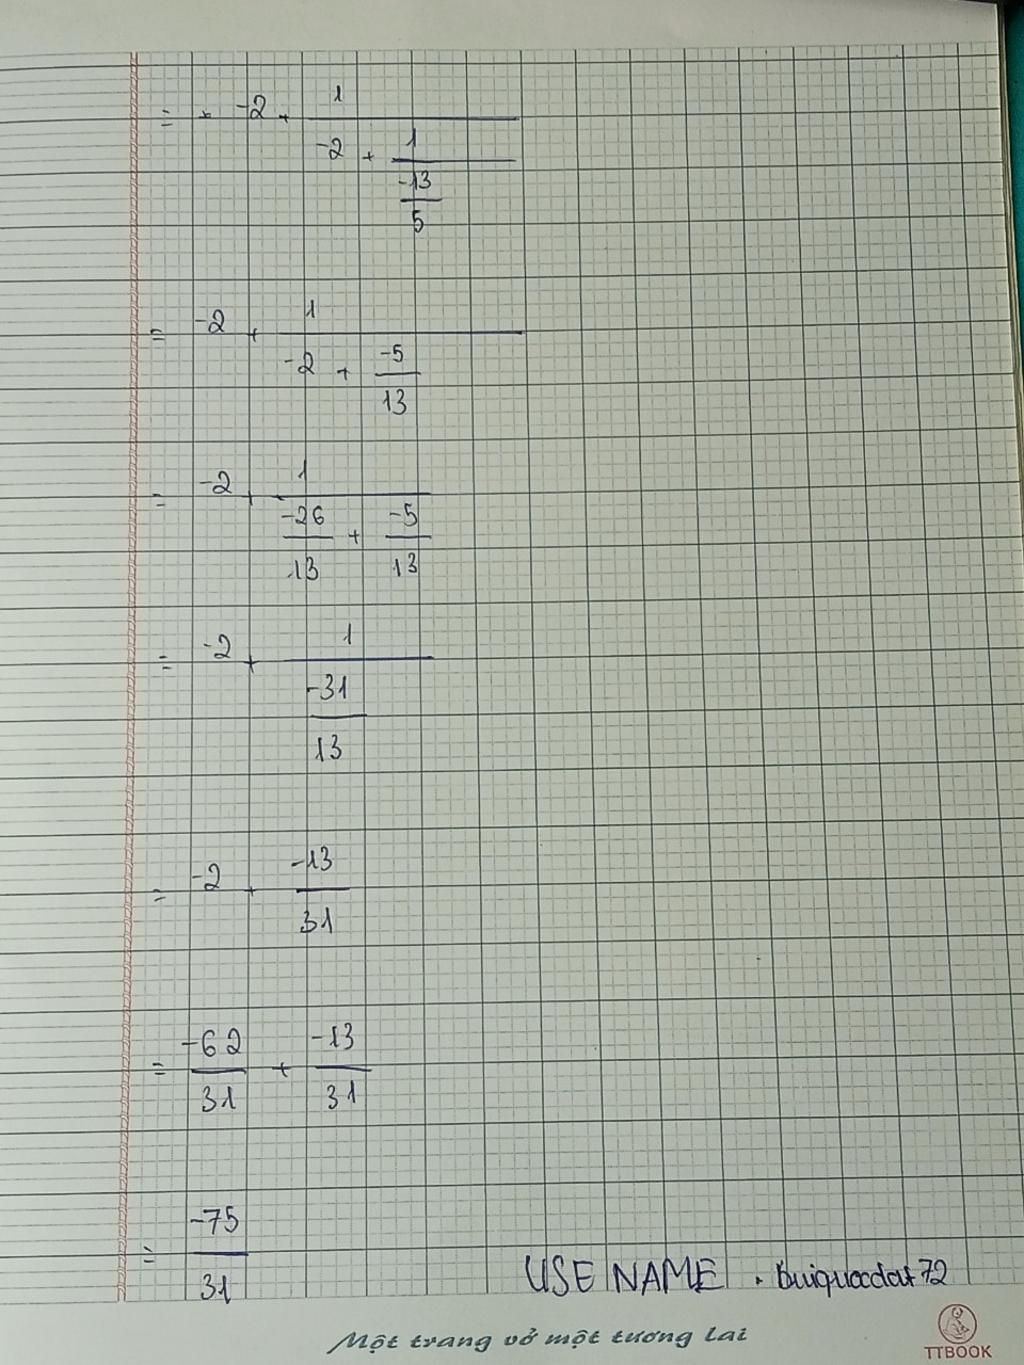 = + -2 + 1
-2 + 1
-13
5
= -2 + 1
-2 + -5
13
= -2 + 1
-26 + -5
13 13
= -2 + 1
-31
13
= -2 + -13
31
= -62 + -13
31 31
= -75
31
USE NAME . buiquocdat72
Một trang vở một tương lai
TTBOOK